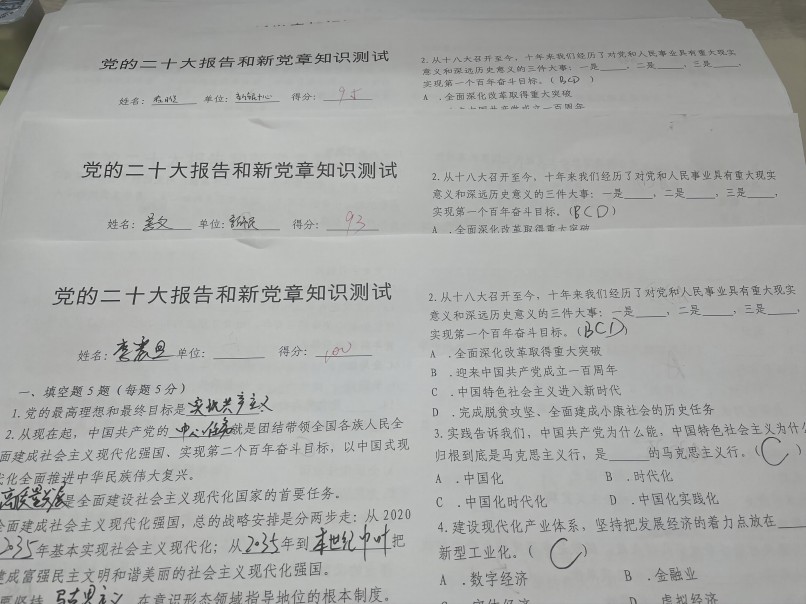 党的二十大报告和新党章知识测试
姓名: 单位: 得分: 95
2.从十八大召开至今,十年来我们经历了对党和人民事业具有重大现实
意义和深远历史意义的三件大事:一是____,二是____,三是____,
实现第一个百年奋斗目标。(BCD)
A .全面深化改革取得重大突破
党的二十大报告和新党章知识测试
姓名: 单位: 得分: 93
2.从十八大召开至今,十年来我们经历了对党和人民事业具有重大现实
意义和深远历史意义的三件大事:一是____,二是____,三是____,
实现第一个百年奋斗目标。(BCD)
A .全面深化改革取得重大突破
党的二十大报告和新党章知识测试
姓名: 单位:______ 得分: 100
一、填空题5题(每题5分)
1.党的最高理想和最终目标是实现共产主义
2.从现在起,中国共产党的中心任务就是团结带领全国各族人民全
面建成社会主义现代化强国、实现第二个百年奋斗目标,以中国式现
代化全面推进中华民族伟大复兴。
高质量发展是全面建设社会主义现代化国家的首要任务。
全面建成社会主义现代化强国,总的战略安排是分两步走:从2020
2035年基本实现社会主义现代化;从2035年到本世纪中叶把
建成富强民主文明和谐美丽的社会主义现代化强国。
要坚持马克思主义在意识形态领域指导地位的根本制度。
2.从十八大召开至今,十年来我们经历了对党和人民事业具有重大现实
意义和深远历史意义的三件大事:一是____,二是____,三是____,
实现第一个百年奋斗目标。(BCD)
A .全面深化改革取得重大突破
B .迎来中国共产党成立一百周年
C .中国特色社会主义进入新时代
D .完成脱贫攻坚、全面建成小康社会的历史任务
3.实践告诉我们,中国共产党为什么能,中国特色社会主义为什么
归根到底是马克思主义行,是____的马克思主义行。(C)
A .中国化 B .时代化
C .中国化时代化 D .中国化实践化
4.建设现代化产业体系,坚持把发展经济的着力点放在____
新型工业化。(C)
A .数字经济 B .金融业
C .实体经济 D .虚拟经济